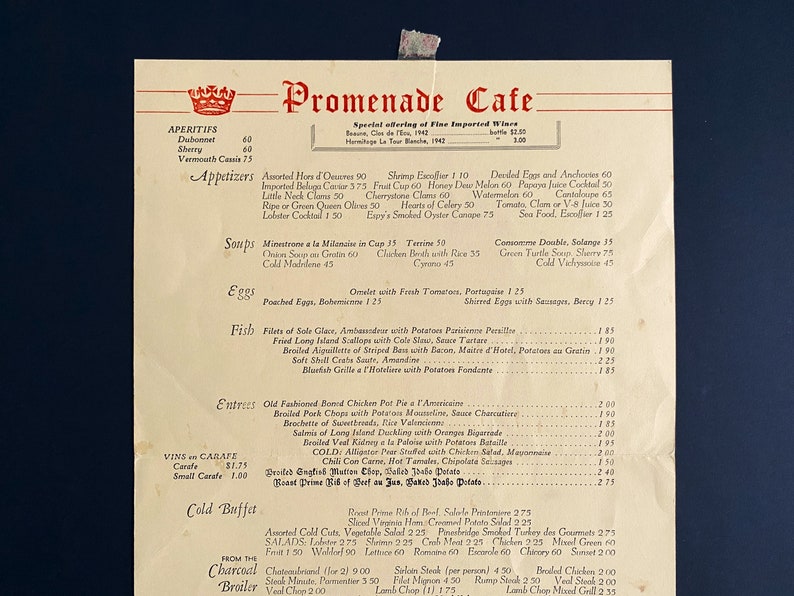 Promenade Cafe
Special offering of Fine Imported Wines
Beaune, Clos de l'Ecu, 1942 .......... bottle $2.50
Hermitage La Tour Blanche, 1942 .......... " 3.00
APERITIFS
Dubonnet 60
Sherry 60
Vermouth Cassis 75
Appetizers
Assorted Hors d'Oeuvres 90 Shrimp Escoffier 1 10 Deviled Eggs and Anchovies 60
Imported Beluga Caviar 3 75 Fruit Cup 60 Honey Dew Melon 60 Papaya Juice Cocktail 50
Little Neck Clams 50 Cherrystone Clams 60 Watermelon 60 Cantaloupe 65
Ripe or Green Queen Olives 50 Hearts of Celery 50 Tomato, Clam or V-8 Juice 30
Lobster Cocktail 1 50 Espy's Smoked Oyster Canape 75 Sea Food, Escoffier 1 25
Soups
Minestrone a la Milanaise in Cup 35 Terrine 50 Consomme Double, Solange 35
Onion Soup au Gratin 60 Chicken Broth with Rice 35 Green Turtle Soup, Sherry 75
Cold Madrilene 45 Cyrano 45 Cold Vichyssoise 45
Eggs
Omelet with Fresh Tomatoes, Portugaise 1 25
Poached Eggs, Bohemienne 1 25 Shirred Eggs with Sausages, Bercy 1 25
Fish
Filets of Sole Glace, Ambassadeur with Potatoes Parisienne Persillee .......... 1 85
Fried Long Island Scallops with Cole Slaw, Sauce Tartare .......... 1 90
Broiled Aiguillette of Striped Bass with Bacon, Maitre d'Hotel, Potatoes au Gratin . 1 90
Soft Shell Crabs Saute, Amandine .......... 2 25
Bluefish Grille a l'Hoteliere with Potatoes Fondante .......... 1 85
Entrees
Old Fashioned Boned Chicken Pot Pie a l'Americaine .......... 2 00
Broiled Pork Chops with Potatoes Mousseline, Sauce Charcutiere .......... 1 90
Brochette of Sweetbreads, Rice Valencienne .......... 1 85
Salmis of Long Island Duckling with Oranges Bigarrade .......... 2 00
Broiled Veal Kidney a la Paloise with Potatoes Bataille .......... 1 95
COLD: Alligator Pear Stuffed with Chicken Salad, Mayonnaise .......... 2 00
Chili Con Carne, Hot Tamales, Chipolata Sausages .......... 1 50
Broiled English Mutton Chop, Baked Idaho Potato .......... 2 40
Roast Prime Rib of Beef au Jus, Baked Idaho Potato .......... 2 75
VINS en CARAFE
Carafe $1.75
Small Carafe 1.00
Cold Buffet
Roast Prime Rib of Beef, Salade Printaniere 2 75
Sliced Virginia Ham, Creamed Potato Salad 2 25
Assorted Cold Cuts, Vegetable Salad 2 25 Pinesbridge Smoked Turkey des Gourmets 2 75
SALADS: Lobster 2 75 Shrimp 2 25 Crab Meat 2 25 Chicken 2 25 Mixed Green 60
Fruit 1 50 Waldorf 90 Lettuce 60 Romaine 60 Escarole 60 Chicory 60 Sunset 2 00
FROM THE
Charcoal
Broiler
Chateaubriand (for 2) 9 00 Sirloin Steak (per person) 4 50 Broiled Chicken 2 00
Steak Minute, Parmentier 3 50 Filet Mignon 4 50 Rump Steak 2 50 Veal Steak 2 00
Veal Chop 2 00 Lamb Chop (1) 1 75 Lamb Chop Mixed Grill 2 35